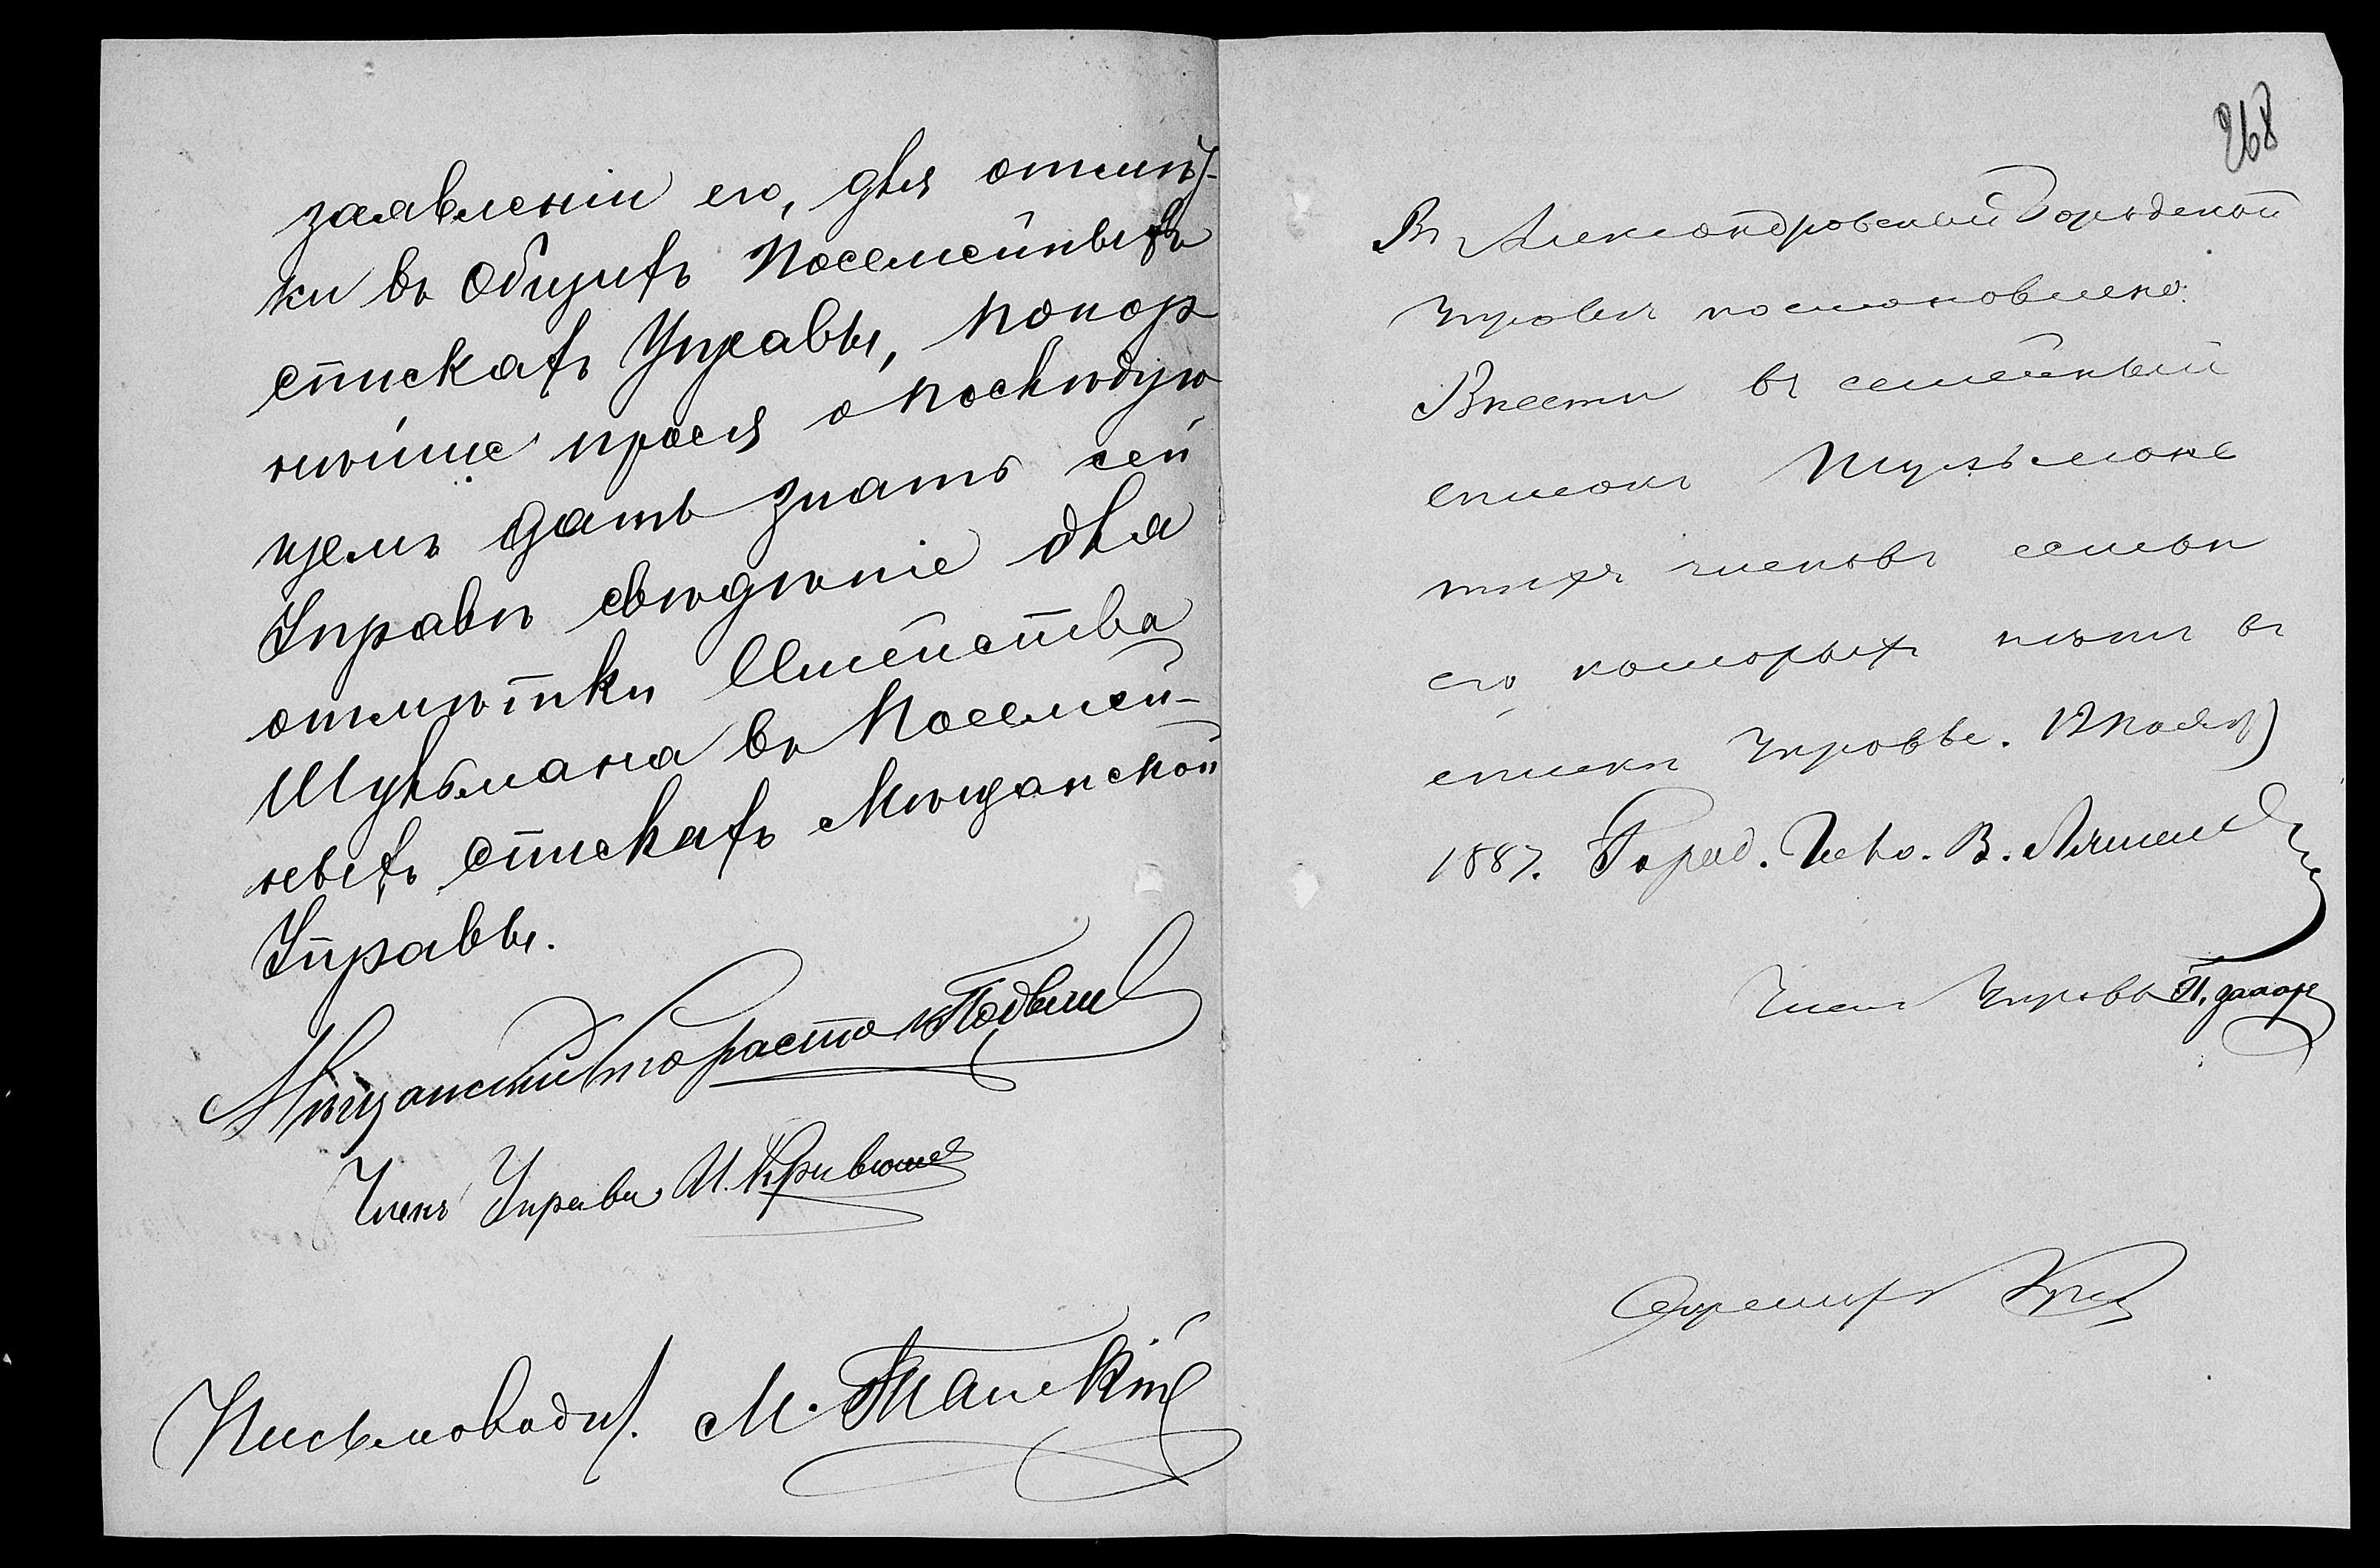 заявленіи его, для отмѣт-
ки въ Общихъ Посемейныхъ
спискахъ Управы, покор
нѣйше прося о послѣдую
щемъ дать знать сей
Управѣ свѣдѣніе для
отмѣтки Имѣйства
Шульмана въ Посемей-
ныхъ спискахъ Мѣщанской
Управы.
Мѣщанскій Староста
Членъ Управы И. Кривошей
Письмоводит. М.
268
Въ Александровской Городской
Управѣ постановлено:
Внести въ семейный
списокъ Шульмана
тѣхъ членовъ семьи
его которыхъ нѣтъ въ
списки Управы. 12 Ноябр
1887. Город. Гол. В.
Членъ Управы
Секретарь